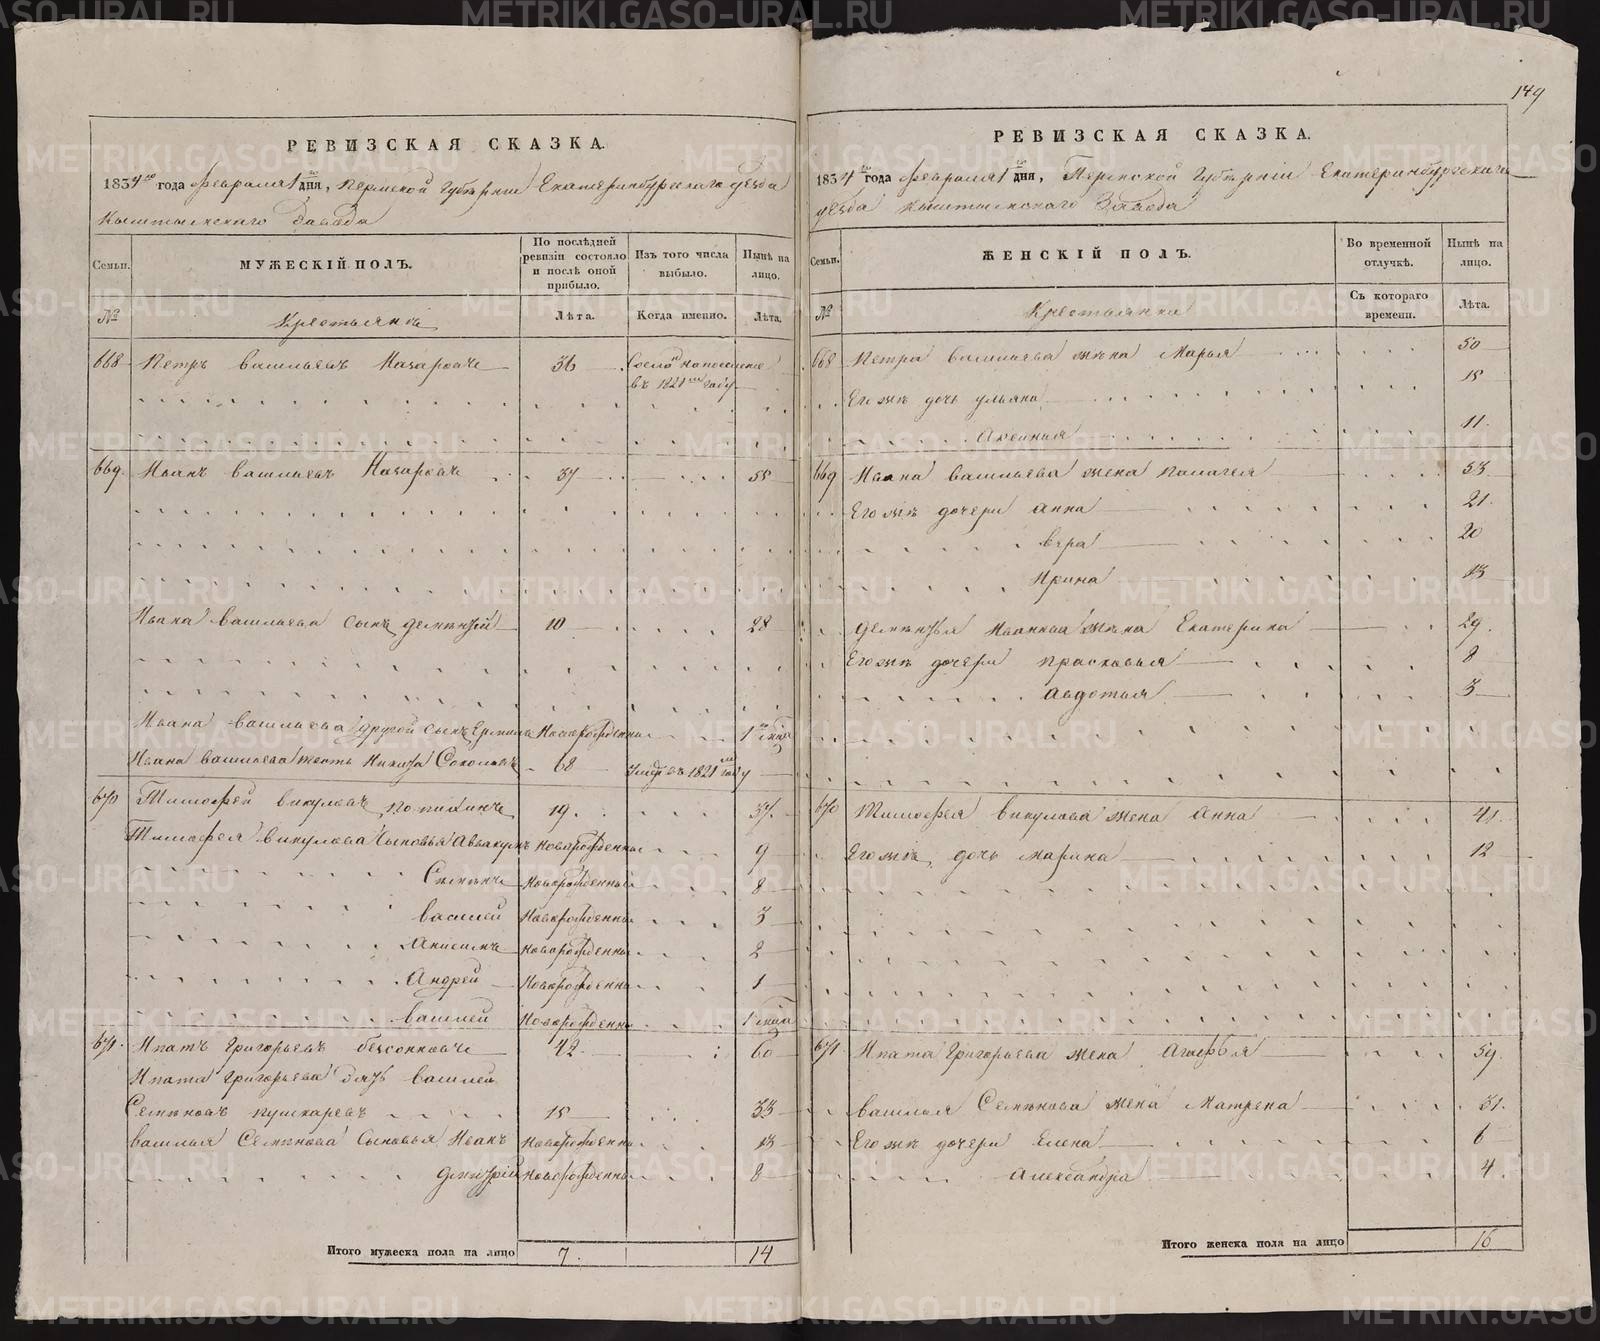 149
РЕВИЗСКАЯ СКАЗКА.
1834го года февраля 1го дня, Пермской Губернiи Екатеринбургскаго уезда
Кыштымскаго Завода
Семьи.
МУЖЕСКІЙ ПОЛЪ.
По послѣдней ревизіи состояло и послѣ оной прибыло.
Изъ того числа выбыло.
Нынѣ на лицо.
№
Крестьянъ
Лѣта.
Когда именно.
Лѣта.
668 Петръ Васильевъ Назаровъ 36
въ 1821м году
669. Иванъ Васильевъ Назаровъ 37 55
Ивана Васильева сынъ Дементей 10 28
Ивана Васильева другой сынъ Новорожденны 1
Ивана Васильева тесть Никита Соколовъ 68 въ 1821м году
670 Тимофей Викуловъ 19. 37.
Тимофея Викулова сыновья Авакумъ новорожденны 9
Семенъ новорожденны 8
Василей новорожденны 3
Анисимъ новорожденны 2
Андрей новорожденны 1
Василей Новорожденны 1
671. Ипатъ Григорьевъ 42. 60
Ипата Григорьева зять Василей
Семеновъ Пушкаревъ 15 33
Василья Семенова сыновья Иванъ новорожденны 13
Дмитрій новорожденны 8
Итого мужеска пола на лицо 7. 14
РЕВИЗСКАЯ СКАЗКА.
1834го года февраля 1го дня, Пермской Губернiи Екатеринбургскаго
уезда Кыштымскаго Завода
Семьи.
ЖЕНСКІЙ ПОЛЪ.
Во временной отлучкѣ.
Нынѣ на лицо.
№
Крестьянка
Съ котораго времени.
Лѣта.
668 Петра Васильева жена Марья 50
Его же дочь Ульяна 15
Аксинья 11.
669 Ивана Васильева жена Палагея 53
Его же дочери Анна 21.
Вера 20
Ирина 13
Дементья Иванова жена Екатерина 29.
Его же дочери Прасковья 8
Авдотья 3
670 Тимофея Викулова жена Анна 41.
Его же дочь Марина 12
671 Ипата Григорьева жена Агафья 59.
Василья Семенова жена Матрена 31.
Его же дочери Елена 6
Александра 4.
Итого женска пола на лицо 16
METRIKI.GASO-URAL.RU